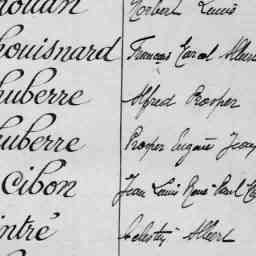 rouan Herbert Louis
houisnard François Marcel Albert
huberre Alfred Prosper
huberre Prosper Eugène Jean
Cibon Jean Louis René Paul
intré Célestin Albert